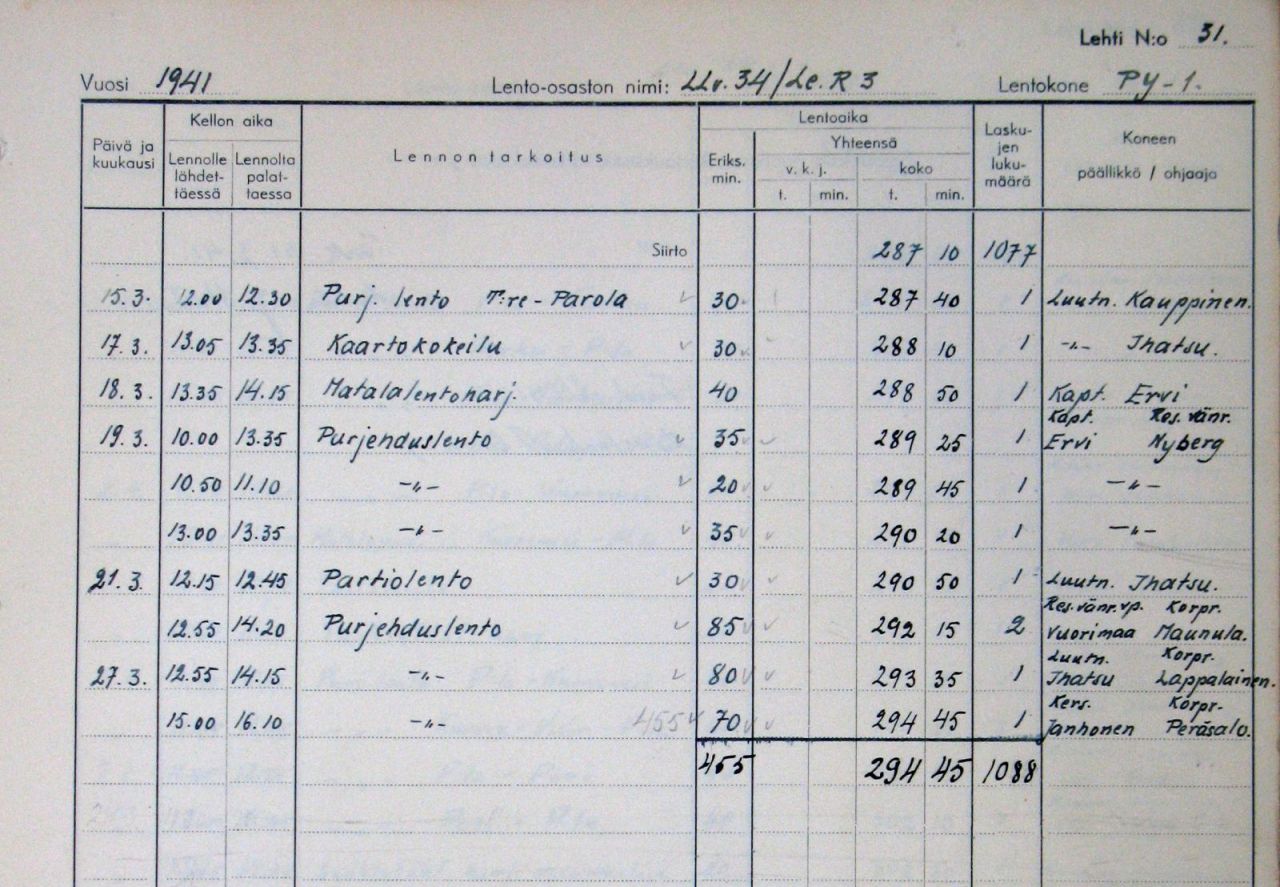 Lehti N:o 31.
Vuosi 1941 Lento-osaston nimi: LLv.34/Le.R 3 Lentokone PY-1.
Päivä ja kuukausi
Kellon aika
Lennolle lähdettäessä
Lennolta palattaessa
Lennon tarkoitus
Lentoaika
Eriks. min.
Yhteensä
v. k. j.
koko
t. min. t. min.
Laskujen lukumäärä
Koneen päällikkö / ohjaaja
Siirto 287 10 1077
15.3. 12.00 12.30 Purj. lento T:re - Parola 30 287 40 1 Luutn. Kauppinen.
17.3. 13.05 13.35 Kaartokokeilu 30 288 10 1 -„- Ihatsu.
18.3. 13.35 14.15 Matalalentoharj. 40 288 50 1 Kapt. Ervi
Kapt. Res. vänr.
19.3. 10.00 13.35 Purjehduslento 35 289 25 1 Ervi Nyberg
10.50 11.10 -„- 20 289 45 1 -„-
13.00 13.35 -„- 35 290 20 1 -„-
21.3. 12.15 12.45 Partiolento 30 290 50 1 Luutn. Ihatsu.
Res.vänr.vp. Korpr.
12.55 14.20 Purjehduslento 85 292 15 2 Vuorimaa Maunula.
Luutn. Korpr.
27.3. 12.55 14.15 -„- 80 293 35 1 Ihatsu Lappalainen.
Kers. Korpr.
15.00 16.10 -„- 455 70 294 45 1 Janhonen Peräsalo.
455 294 45 1088